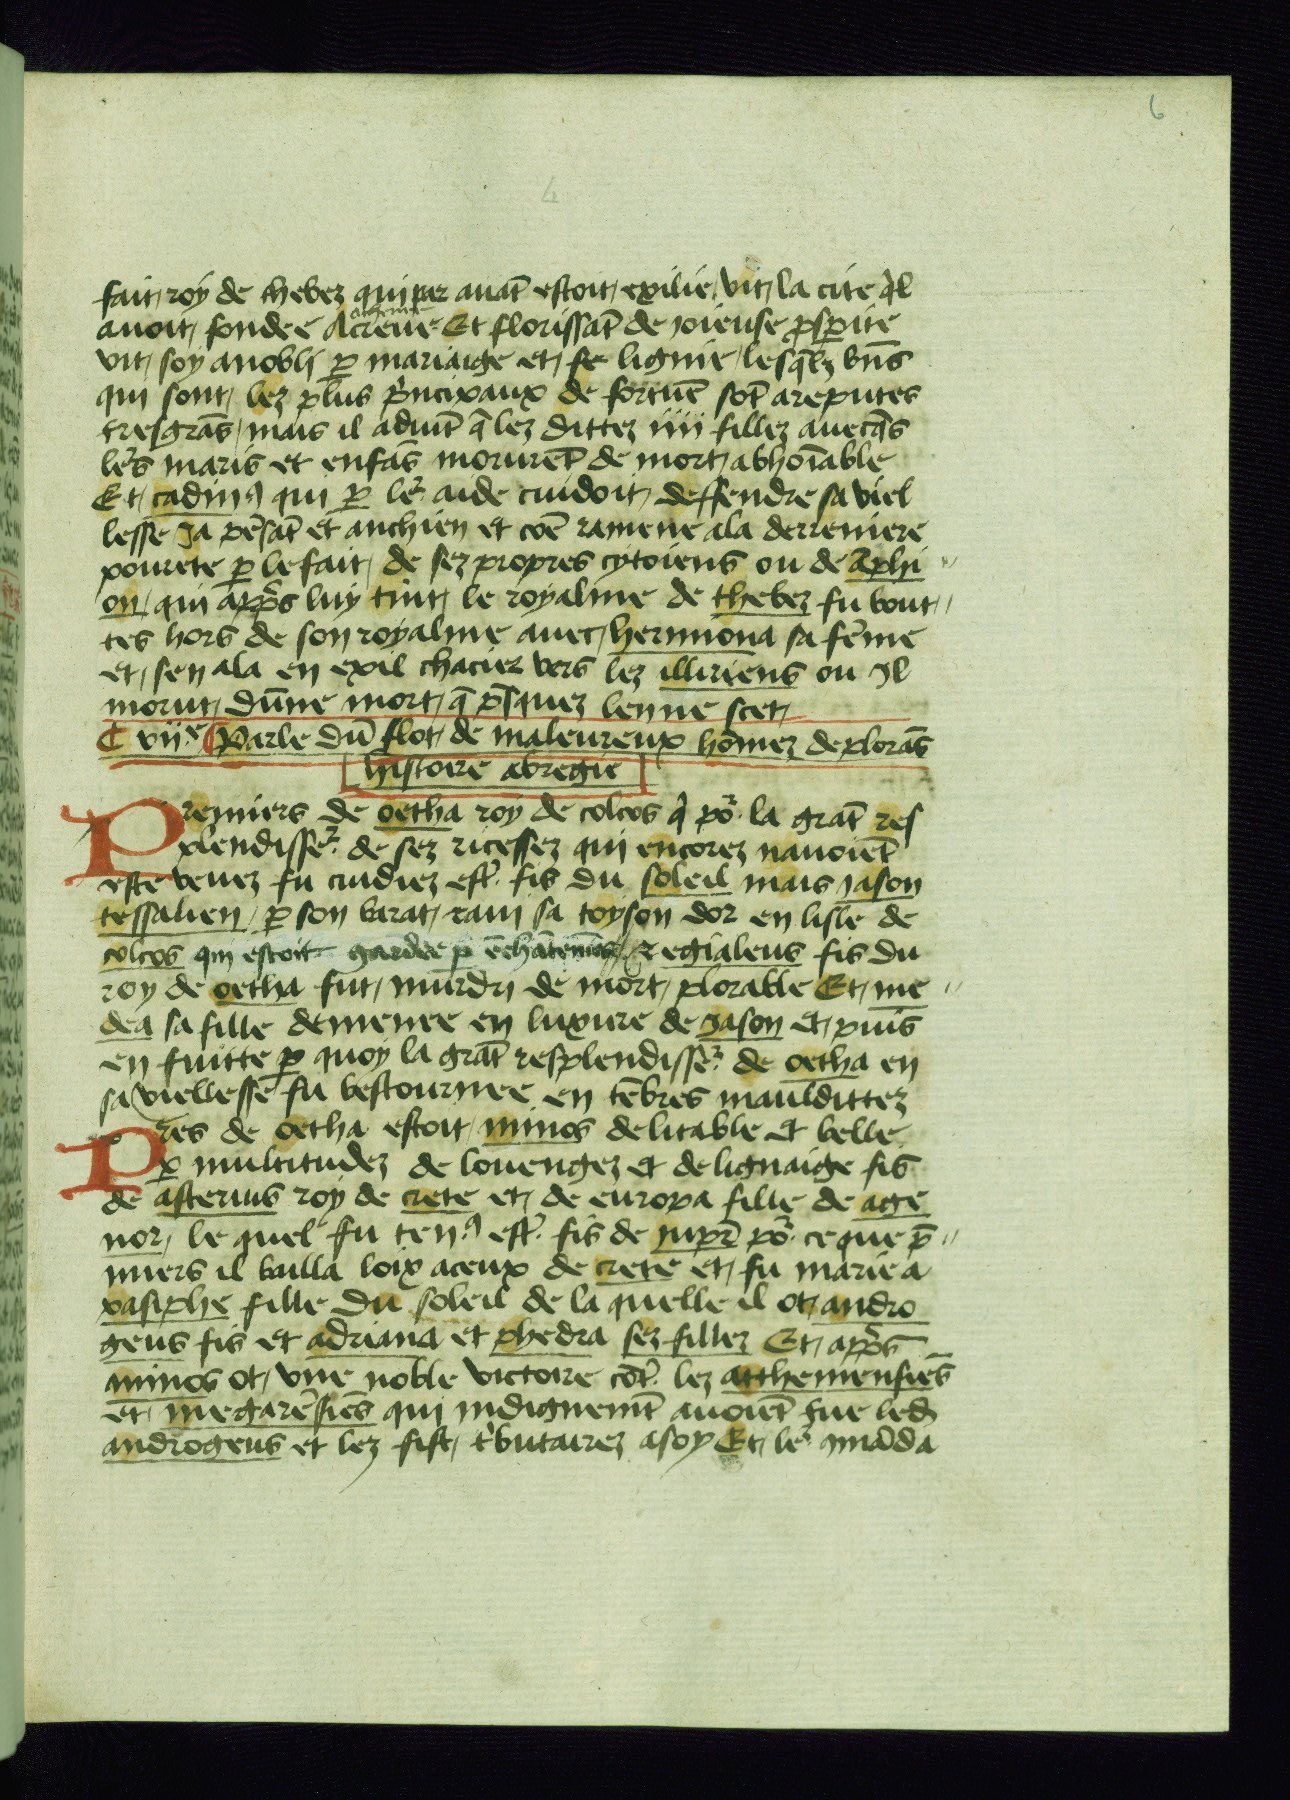 6
4
fait roy de thebez qui par auāt estoit exilie vit la cite q̄l
auoit fondee Acreue Et florissāt de ioieuse ꝓsꝑite
vit soy anobly ꝑ mariaige et se lignie lesq̄lz bn̄s
qui sont lez plus p̄ncipaux de fortūe sōt areputes
tresgrās mais il aduīt q̄ lez dittez iiii fillez auecq̄s
le'rs maris et enfās morurēt de mort abhoīable
Et cadmꝰ qui ꝑ le'r aide cuidoit deffendre sa viel
lesse Ja pēsāt et anchien et cōe ramene ala derreniere
pourete ꝑ le fait de sez propres cytoiens ou de Aphi
on qui app̄s luy tint le royalme de thebez fu bout
tes hors de son royalme auec hermiona sa fēme
et sen ala en exil chacier vers lez illiriens ou Jl
morut dūne mort q̄ p̄sq̄uez len ne scet
C vii.e Parle dū flot de maleureux hōmez deplorās
histoire abregie
Premiers de oetha roy de colcos q̄ po'r la grāt res
plendisse'r de sez ricessez qui encorez nauoiēt
este veuez fu cuidiez est'r fis du soleil mais Jason
tessalien ꝑ son barat raui sa toyson dor en lisle de
colcos qui estoit gardee ꝑ ēchātemēs Et egialeus fis du
roy de oetha fut murdri de mort plorable Et me
dea sa fille demenee en luxure de Jason et puis
en fuitte ꝑ quoy la grāt resplendisse'r de oetha en
sa viellesse fu bestournee en tēbres mauldittez
Pres de oetha estoit minos delitable et belle
ꝑ multitudez de louengez et de lignaige fis
de asterius roy de crete et de europa fille de age
nor le quel fu tenꝰ est'r fis de iup̄r po'r ce que p̄
miers il bailla loix aceux de crete et fu marie a
pasiphe fille du soleil de la quelle il ot andro
geus fis et adriana et phedra sez fillez Et app̄s
minos ot vne noble victoire cōt'r lez atthemensiēs
et megarēsiēs qui indignemīt auoiēt tue led
androgeus et lez fist t'butairez asoy Et le'r q̄māda